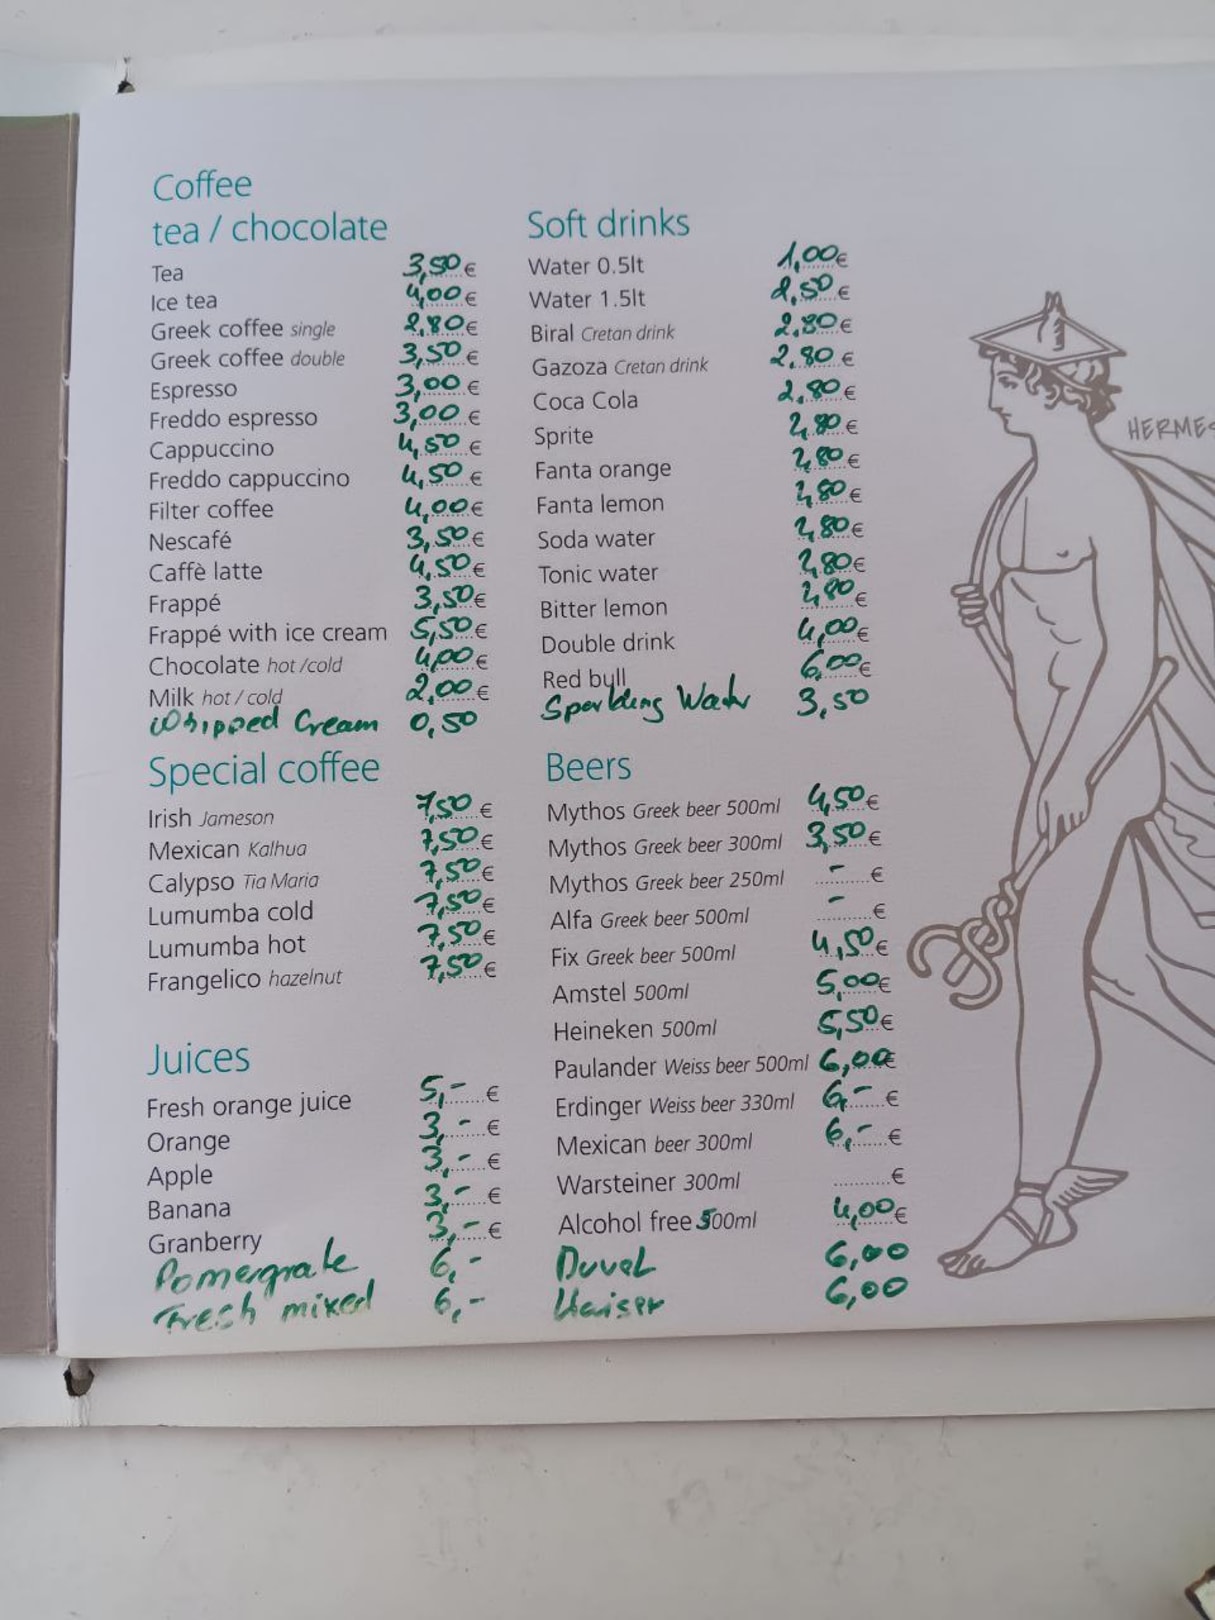 Coffee
tea / chocolate
Tea 3,50 €
Ice tea 4,00 €
Greek coffee single 2,80 €
Greek coffee double 3,50 €
Espresso 3,00 €
Freddo espresso 3,00 €
Cappuccino 4,50 €
Freddo cappuccino 4,50 €
Filter coffee 4,00 €
Nescafé 3,50 €
Caffè latte 4,50 €
Frappé 3,50 €
Frappé with ice cream 5,50 €
Chocolate hot /cold 4,00 €
Milk hot / cold 2,00 €
Whipped Cream 0,50
Special coffee
Irish Jameson 7,50 €
Mexican Kalhua 7,50 €
Calypso Tia Maria 7,50 €
Lumumba cold 7,50 €
Lumumba hot 7,50 €
Frangelico hazelnut 7,50 €
Juices
Fresh orange juice 5,- €
Orange 3,- €
Apple 3,- €
Banana 3,- €
Granberry 3,- €
Pomergrate 6,-
Fresh mixed 6,-
Soft drinks
Water 0.5lt 1,00 €
Water 1.5lt 2,50 €
Biral Cretan drink 2,80 €
Gazoza Cretan drink 2,80 €
Coca Cola 2,80 €
Sprite 2,80 €
Fanta orange 2,80 €
Fanta lemon 2,80 €
Soda water 2,80 €
Tonic water 2,80 €
Bitter lemon 2,80 €
Double drink 4,00 €
Red bull 6,00 €
Sparkling Water 3,50
Beers
Mythos Greek beer 500ml 4,50 €
Mythos Greek beer 300ml 3,50 €
Mythos Greek beer 250ml - €
Alfa Greek beer 500ml - €
Fix Greek beer 500ml 4,50 €
Amstel 500ml 5,00 €
Heineken 500ml 5,50 €
Paulander Weiss beer 500ml 6,00 €
Erdinger Weiss beer 330ml 6,- €
Mexican beer 300ml 6,- €
Warsteiner 300ml €
Alcohol free 500ml 4,00 €
Duvel 6,00
Kaiser 6,00
HERMES